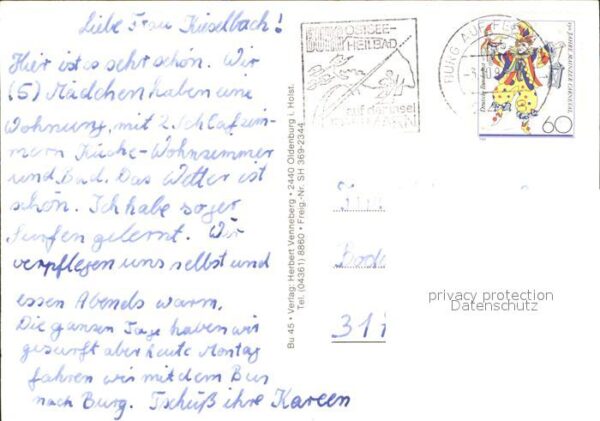 Liebe Frau Kieselbach!
Hier ist es sehr schön. Wir
(5) Mädchen haben eine
Wohnung, mit 2 Schlafzim-
mern Küche-Wohnzimmer
und Bad. Das Wetter ist
schön. Ich habe sogar
Surfen gelernt. Wir
verpflegen uns selbst und
essen Abends warm.
Die ganzen Tage haben wir
gesurft aber heute Montag
fahren wir mit dem Bus
nach Burg. Tschüß ihre Kareen
Bu 45 • Verlag: Herbert Venneberg • 2440 Oldenburg i. Holst.
Tel. (04361) 8860 • Freig.-Nr. SH 369-2344
OSTSEE-
HEILBAD
auf der Insel
BURG AUF FEHMARN
Deutsche Bundespost
150 JAHRE MAINZER CARNEVAL
60
31
privacy protection
Datenschutz